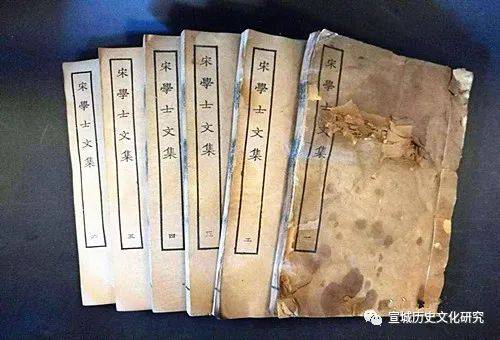 宋學士文集
六
宋學士文集
五
宋學士文集
四
宋學士文集
三
宋學士文集
二
宋學士文集
一
宣城历史文化研究